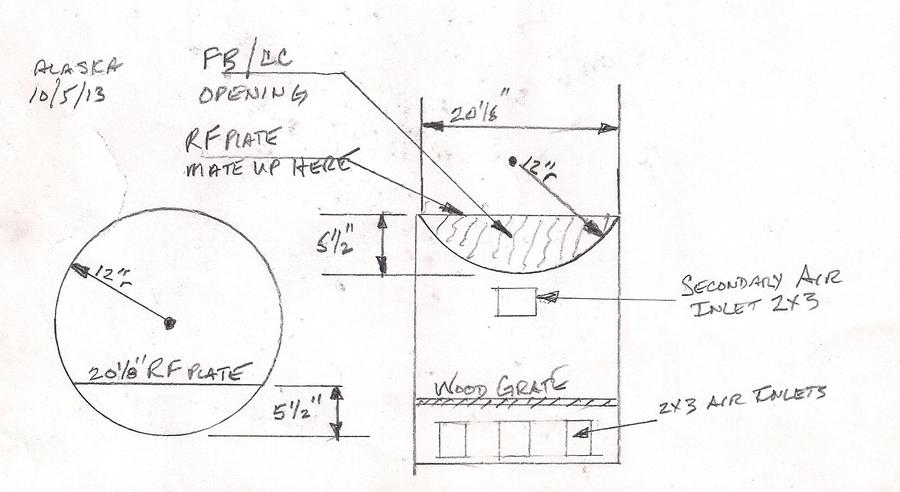 ALASKA
10/5/13
FB/CC
OPENING
RF PLATE
MATE UP HERE
20 1/8"
12"r
5 1/2"
SECONDARY AIR
INLET 2X3
12"r
20 1/8" RF PLATE
5 1/2"
WOOD GRATE
2X3 AIR INLETS